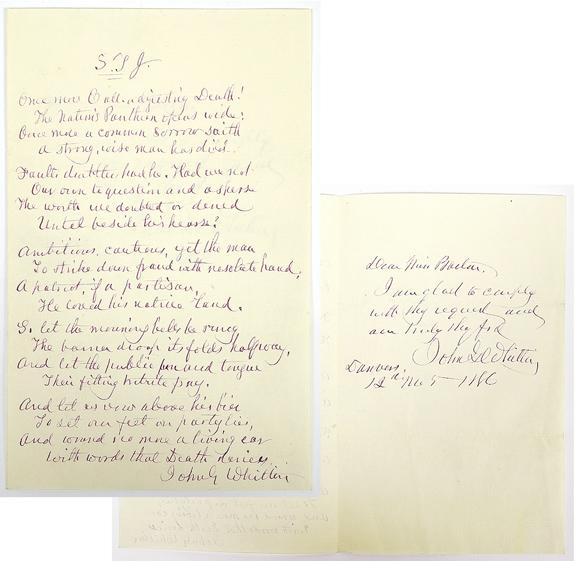 S.J.T.
Once more O all-adjusting Death!
The Nation's Pantheon opens wide;
Once more a common sorrow saith
a strong, wise man has died.
Faults doubtless had he. Had we not
Our own to question and asperse
The worth we doubted or denied
Until beside his hearse?
Ambitious, cautious, yet the man
To strike down fraud with resolute hand;
A patriot, if a partisan,
He loved his native land.
So let the mourning bells be rung
The banner droop its folds halfway,
And let the public pen and tongue
Their fitting tribute pay.
And let us vow above his bier
To set our feet on party lies,
And wound no more a living ear
with words that Death denies
John G Whittier
Dear Miss
I am glad to comply
with thy request and
am truly thy frd
John G Whittier
Danvers